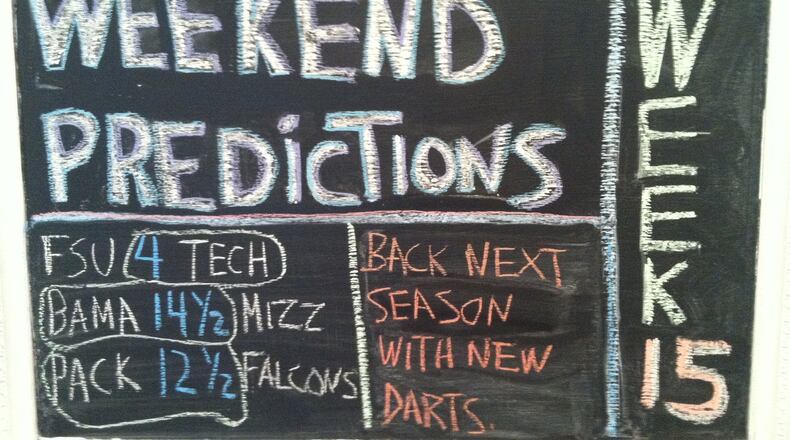 WEEKEND
PREDiCTIONS
FSU 4 TECH
BAMA 14½ MIZZ
PACK 12½ FALCONS
BACK NEXT
SEASON
WITH NEW
DARTS.
WEEK
15